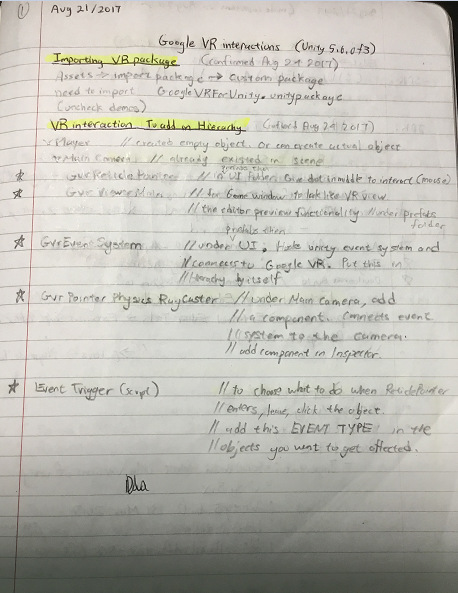 ① Aug 21/2017
Google VR interactions (Unity 5.6.0f3)
Importing VR package (confirmed Aug 24 2017)
Assets → import package → custom package
need to import GoogleVRForUnity.unitypackage
(uncheck demos)
VR interaction To add on Hierarchy (Aug 24 2017)
Player // created empty object. Or can create actual object
Main Camera // already existed in scene
GvrReticlePointer // in UI folder. One dot in middle to interact (mouse)
Gvr Viewer Main // for Game window to look like VR view
// the editor preview functionality. // under prefabs folder
GvrEventSystem // under UI. Hide unity event system and
// connects to Google VR. Put this in
// hierarchy by itself
Gvr Pointer Physics Raycaster // under Main Camera, add
// a component. Connects event
// system to the camera.
// add component in Inspector.
Event Trigger (script) // to choose what to do when ReticlePointer
// enters, leave, click the object.
// add this EVENT TYPE in the
// objects you want to get affected.